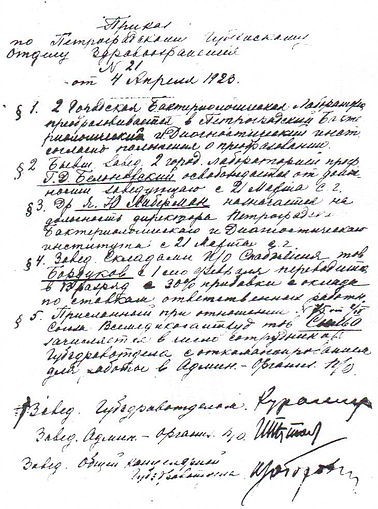 Приказ
по Петроградскому Губернскому
Отделу Здравоохранения
N 21
от 4 Апреля 1923.
§ 1. 2 Городская Бактериологическая Лаборатория
преобразовывается в Петроградский Бакте-
риологический и Диагностический инст.
согласно положения о преобразовании.
§ 2 Бывш. Завед. 2 город. Лабораторией проф.
Г.Д. Белоновский освобождается от
заведующего с 21 Марта с.г.
§ 3. Др. Я. Ю. Либерман назначается на
должность директора Петроградск.
Бактериологического и Диагностического
института с 21 Марта с.г.
§ 4. Завед Складами П/О Снабжения тов
с 1го февраля переводится
в 13 разряд с 30% прибавки с оклада
по ставкам ответственных работн.
§ 5. Присланный при отношении N
тов.
зачисляется в число сотрудников
Губздравотдела с откомандированием
для работы в Админ.-Организ. П/О
Завед. Губздравотделом
Завед. Админ.-Организ. п/о
Завед. Общей канцелярией
Губздравотдела